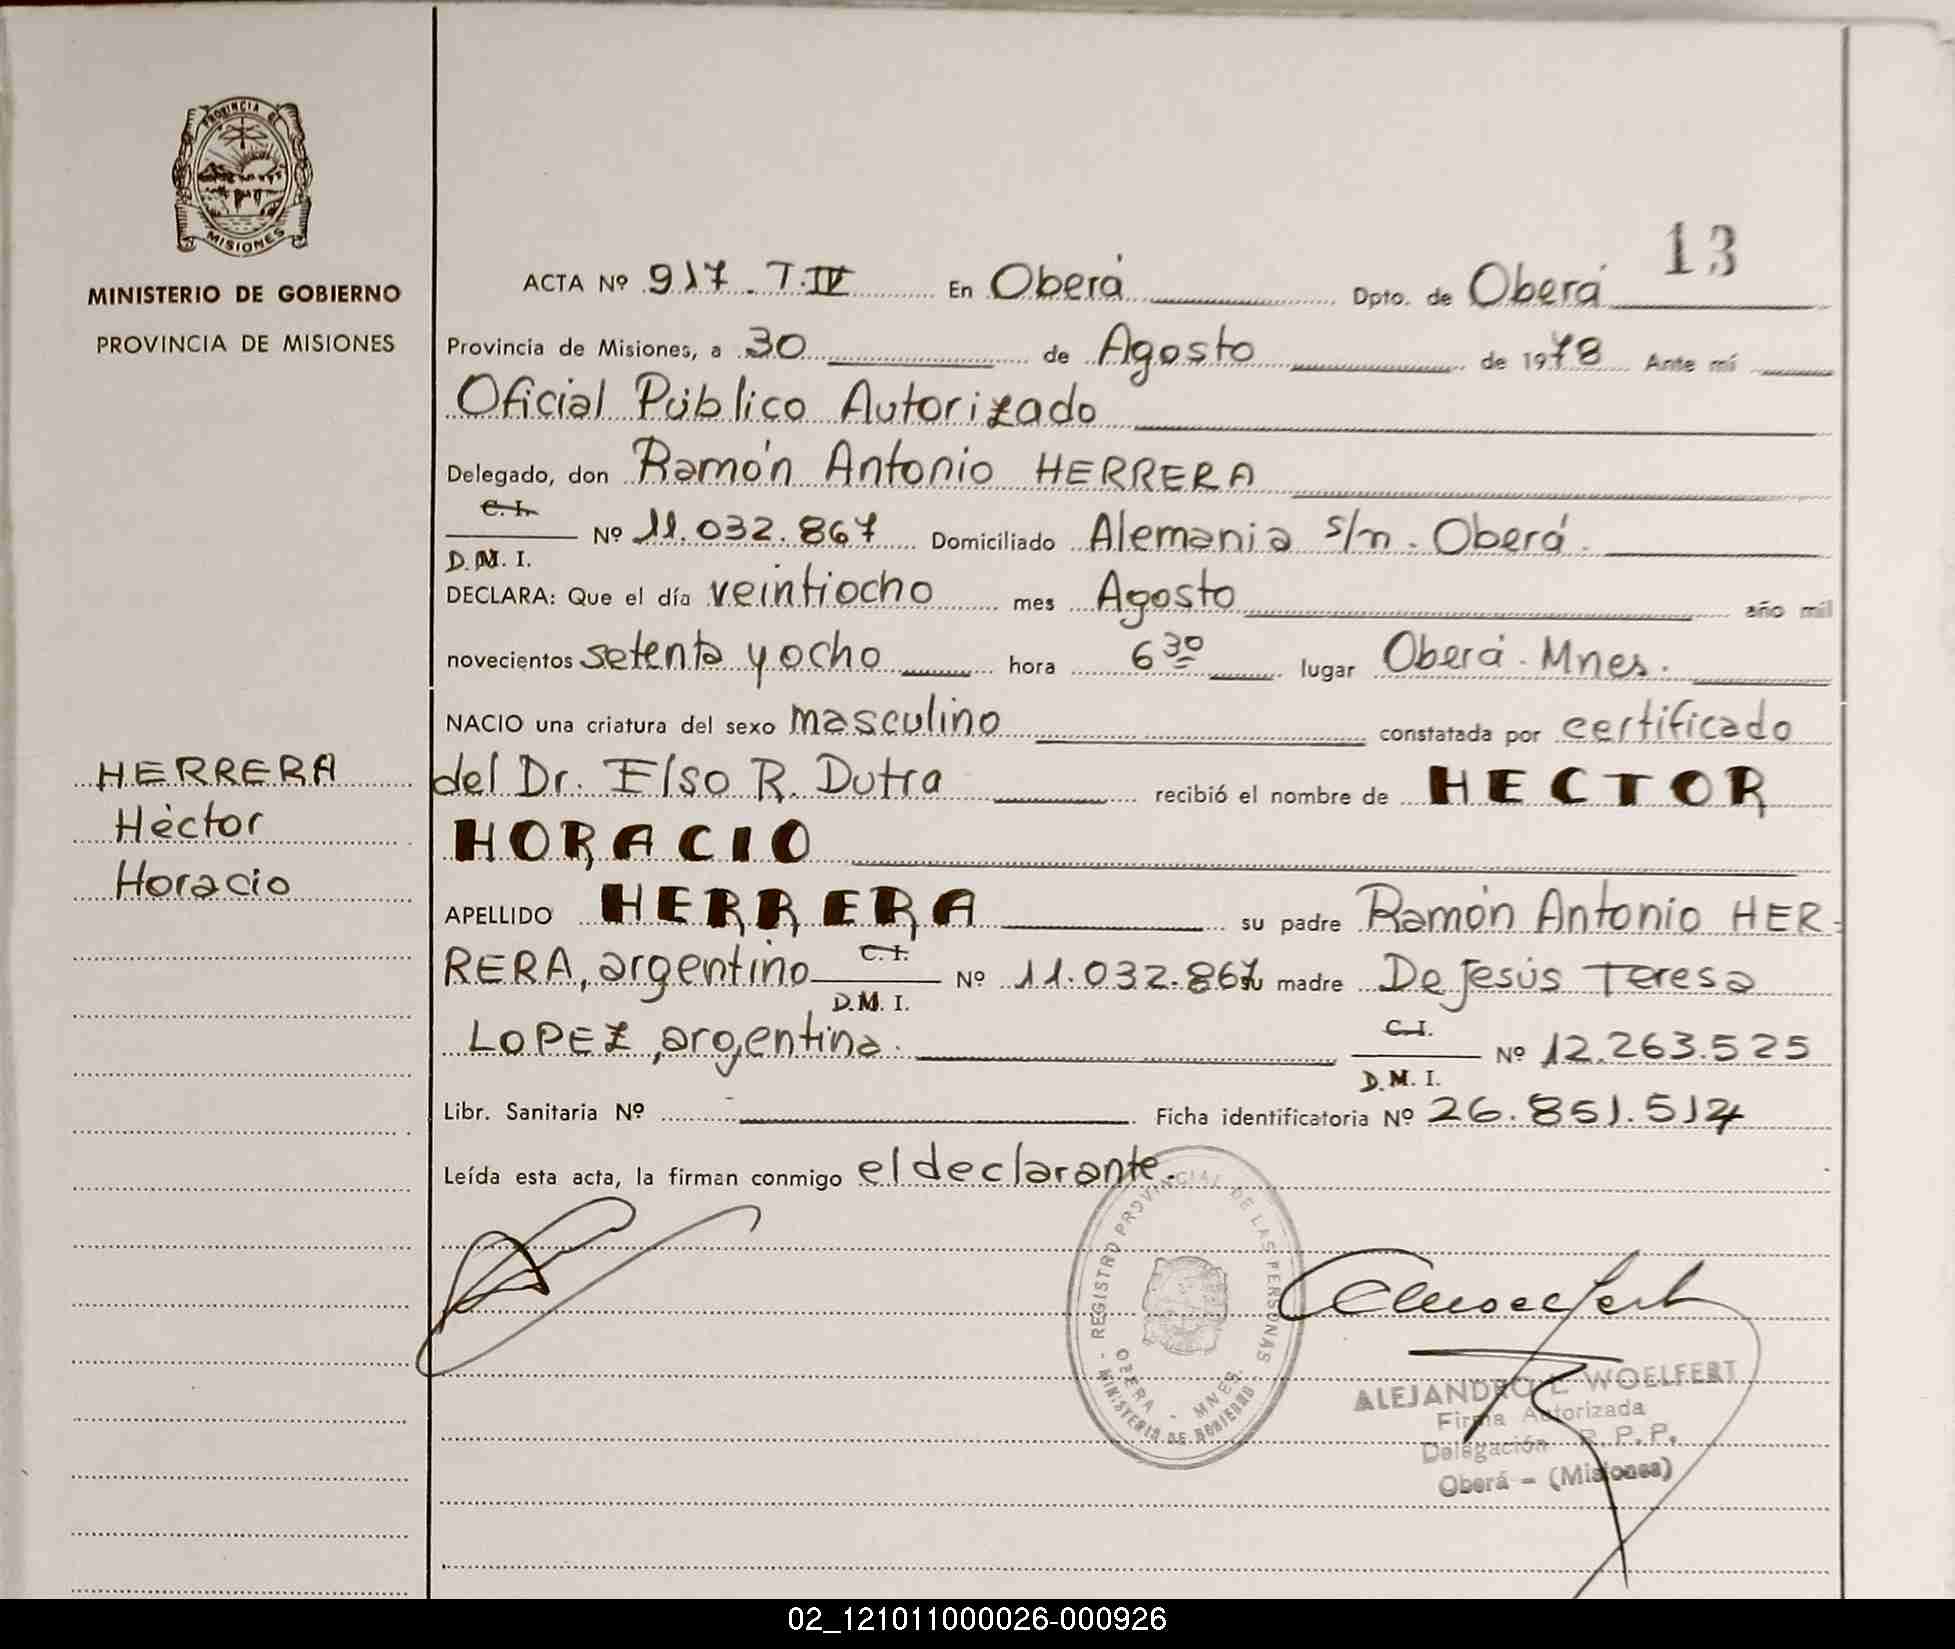 PROVINCIA DE
MISIONES
MINISTERIO DE GOBIERNO
PROVINCIA DE MISIONES
HERRERA
Hèctor
Horacio
13
ACTA Nº 917. T.IV En Oberá Dpto. de Oberá
Provincia de Misiones, a 30 de Agosto de 1978 Ante mí
Oficial Público Autorizado
Delegado, don Ramón Antonio HERRERA
C. I.
D. M. I. Nº 11.032.867 Domiciliado Alemania s/n. Oberá.
DECLARA: Que el día veintiocho mes Agosto año mil
novecientos setenta y ocho hora 6 30 lugar Oberá. Mnes.
NACIO una criatura del sexo masculino constatada por certificado
del Dr. Elso R. Dutra recibió el nombre de HECTOR
HORACIO
APELLIDO HERRERA su padre Ramón Antonio HER-
RERA, argentino C. I. D. M. I. Nº 11.032.867 su madre De Jesús Teresa
LOPEZ, argentina. C. I. D. M. I. Nº 12.263.525
Libr. Sanitaria Nº - Ficha identificatoria Nº 26.851.514
Leída esta acta, la firman conmigo el declarante.
REGISTRO PROVINCIAL DE LAS PERSONAS
OBERA - MNES.
- MINISTERIO DE GOBIERNO -
ALEJANDRO L. WOELFERT
Firma Autorizada
Delegación R.P.P.
Oberá - (Misiones)
02_121011000026-000926